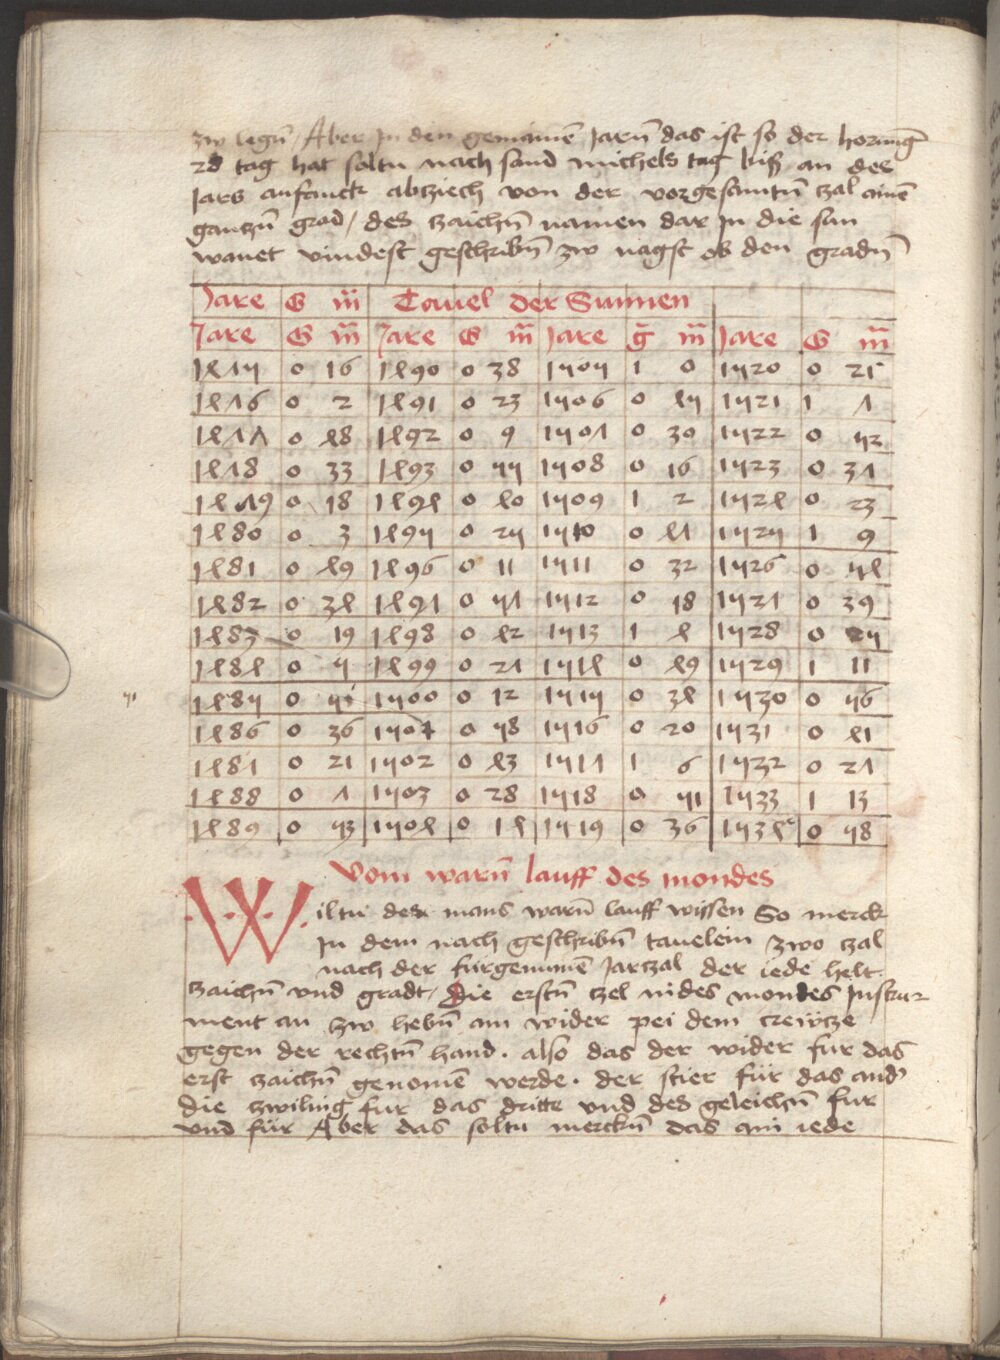 zw legn̄ / Aber In den gemainē Jarn̄ das ist so der hornūg
28 tag hat soltu nach sand michels tag biß an des
Jars anfanck abziech von der vorgesamtn̄ zal ainē
ganzn̄ grad / des zaichn̄ namen dar In die sun
wanet vindest geschribn̄ zw nagst ob den gradn̄
Jare G m̄ Tauel der Sunnen
Jare G m̄ Jare G m̄ Jare ḡ m̄ Jare G m̄
1475 0 16 1490 0 38 1505 1 0 1520 0 21
1476 0 2 1491 0 23 1506 0 45 1521 1 7
1477 0 48 1492 0 9 1507 0 30 1522 0 52
1478 0 33 1493 0 55 1508 0 16 1523 0 37
1479 0 18 1494 0 40 1509 1 2 1524 0 23
1480 0 3 1495 0 25 1510 0 47 1525 1 9
1481 0 49 1496 0 11 1511 0 32 1526 0 54
1482 0 34 1497 0 57 1512 0 18 1527 0 39
1483 0 19 1498 0 42 1513 1 4 1528 0 25
1484 0 5 1499 0 27 1514 0 49 1529 1 11
51 1485 0 51 1500 0 12 1515 0 34 1530 0 56
1486 0 36 1501 0 58 1516 0 20 1531 0 41
1487 0 21 1502 0 43 1517 1 6 1532 0 27
1488 0 7 1503 0 28 1518 0 51 1533 1 13
1489 0 53 1504 0 14 1519 0 36 1534 0 58
Vom warn̄ lauff des mondes
Wiltu des mans warn̄ lauff wissen So merck
In dem nach geschribn̄ tauelein zwo zal
nach der furgenumē Jarzal der iede helt
zaichn̄ vnd gradt / Die erstn̄ zel in des mondes Instru
ment an zw hebn̄ am wider pei dem crewtze
gegen der rechtn̄ hand . also das der wider fur das
erst zaichn̄ genomē werde . der stier für das and'
die zwiling fur das dritte vnd des geleichn̄ fur
vnd für Aber das soltu merckn̄ das ain iede